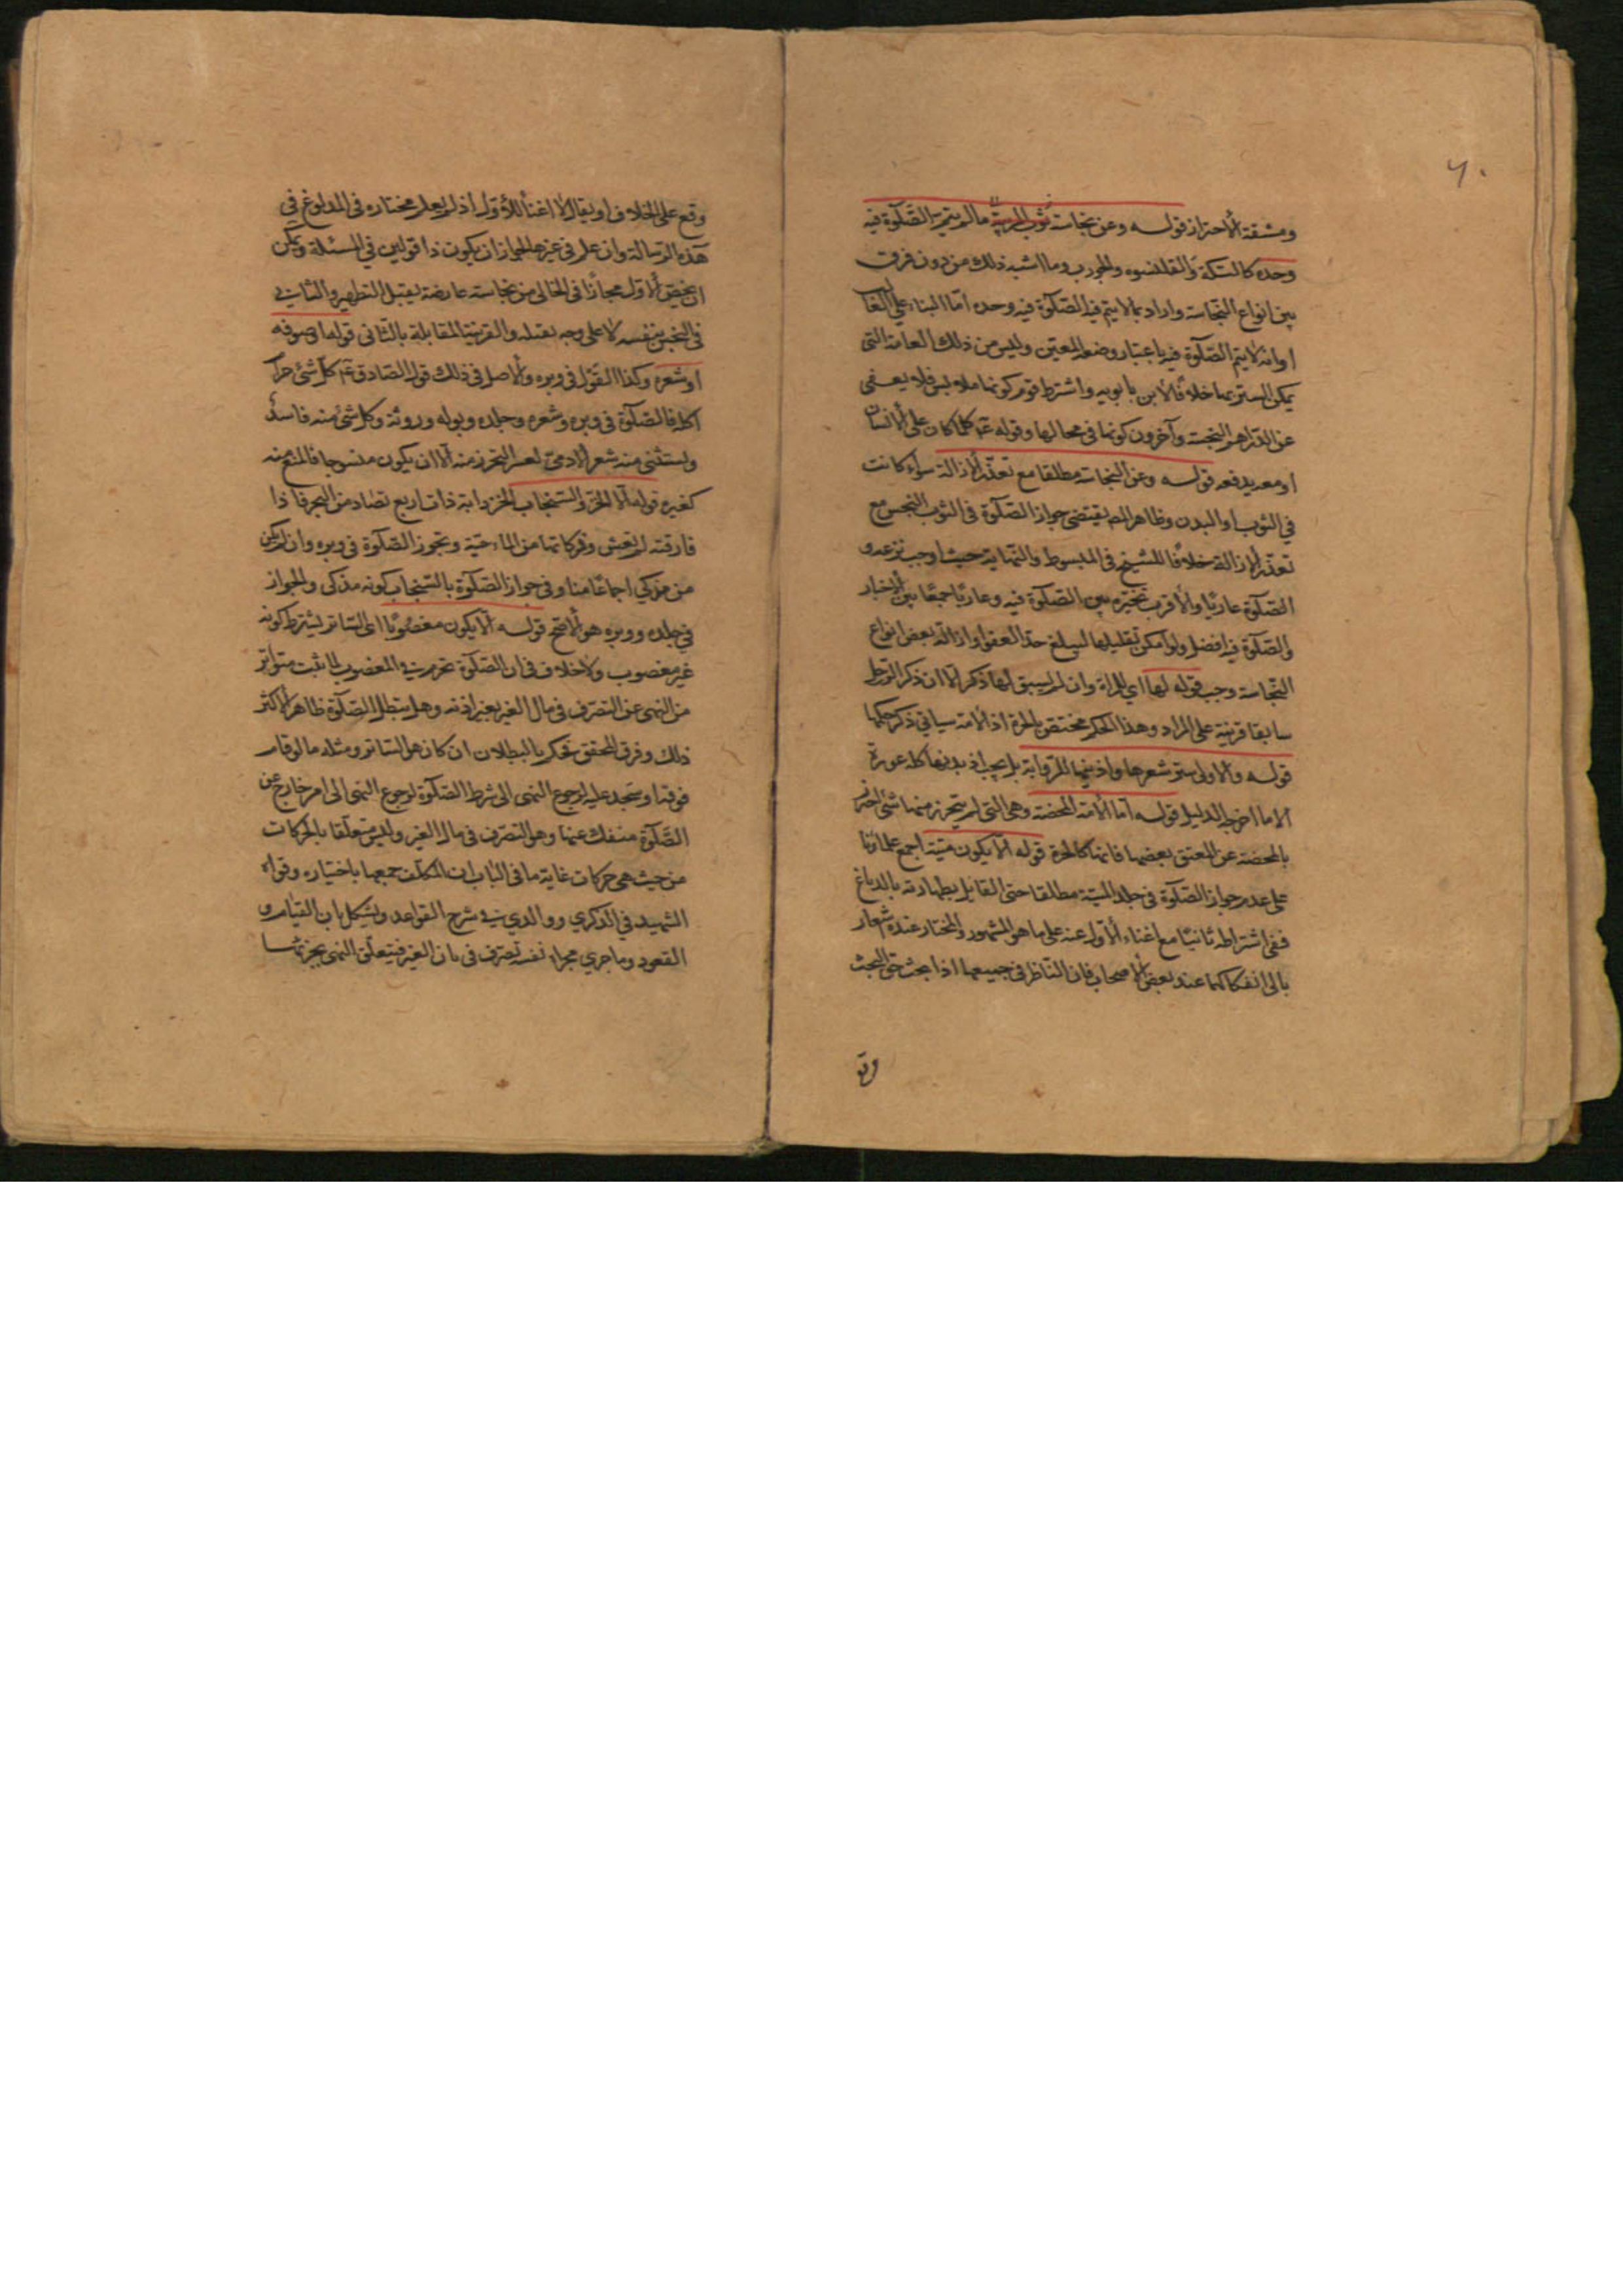 ٦٠
ومشقة الاحتراز قوله وعن نجاسة ثوب المربية ما لم يتم الصلوة فيه
وحده كالتكة والقلنسوه والجورب وما اشبه ذلك من دون فرق
بين انواع النجاسة واراد بما لا يتم فيه الصلوة فيه وحده اما البناء على
او انه لا يتم الصلوة فيه باعتبار وضعه المعين وليس من ذلك العمامة التى
يمكن الستر بها خلافا لابن بابويه واشترط قوم كونها ملابس فلا يعفى
عن الدراهم النجسة وآخرون كونها في محالها وقوله ع كلما كان على الانسان
او معه يدفعه قوله وعن النجاسة مطلقا مع تعذر الازالة سواء كانت
في الثوب او البدن وظاهر المص يقتضى جواز الصلوة في الثوب النجس مع
تعذر الازالة خلافا للشيخ في المبسوط والنهاية حيث اوجب نزعه و
الصلوة عاريا والاقرب تخيره بين الصلوة فيه وعاريا جمعا بين الاخبار
والصلوة فيه افضل ولو امكن تقليلها ليبلغ حد العفو او ازالة بعض انواع
النجاسة وجب قوله لها اي للمراة وان لم يسبق لها ذكر الا ان ذكر الرجل
سابقا قرينة على المراد وهذا الحكم مختص بالحرة اذ الامة سياتي ذكر حكمها
قوله والاولى ستر شعرها واذنيها للرواية بل يجب اذ بدنها كله عورة
الا ما اخرجه الدليل قوله اما الامة المحضة وهي التى لم يتحرر منها شئ احترز
بالمحضة عن المعتق بعضها فانها كالحرة قوله الا يكون ميتة اجمع علماؤنا
على عدم جواز الصلوة في جلد الميتة مطلقا حتى القايل بطهارته بالدباغ
ففى اشتراطه ثانيا مع اغناء الاول عنه على ما هو المشهور والمختار عنده اشعار
بالى انفكاكهما عند بعض الاصحاب فان الناظر في جميعها اذا بحث حق البحث
وقع على الخلاف او يقال لا اغناء للاول اذ لم يعلم مختاره في المدبوغ في
هذه الرسالة وان علم في غيرها لجواز ان يكون ذا قولين في المسئلة ويمكن
ان يخص الاول مجازا في الخالى من نجاسة عارضة يقبل التطهير والثاني
في النجس بنفسه لا على وجه يقبله والقرينة المقابلة بالثانى قوله او صوفه
او شعره وكذا القول في وبره والاصل في ذلك قول الصادق ع كل شئ حرام
اكله فالصلوة في وبره وشعره وجلده وبوله وروثه وكل شئ منه فاسد
ويستثنى منه شعر الادمى لعسر التحرز منه الا ان يكون منسوجا فالمنع منه
كغيره قوله الا الخز والسنجاب الخز دابة ذات اربع تصاد من البحر فاذا
فارقته لم تعش وذكاتها من الماء حية وتجوز الصلوة في وبره وان لم يكن
من مذكى اجماعا منا وفي جواز الصلوة بالسنجاب كونه مذكى والجواز
في جلده ووبره هو الاصح قوله الا يكون مغصوبا اى الساتر يشترط كونه
غير مغصوب ولا خلاف في ان الصلوة تحرم في المغصوب لما ثبت متواتر
من النهى عن التصرف في مال الغير بغير اذنه وهل تبطل الصلوة ظاهر الاكثر
ذلك وفرق المحقق فحكم بالبطلان ان كان هو الساتر ومثله ما لو قام
فوقه او سجد عليه لرجوع النهى الى شرط الصلوة لرجوع النهى الى امر خارج عن
الصلوة منفك عنها وهو التصرف في مال الغير وليس متعلقا بالحركات
من حيث هى حركات غاية ما في الباب ان المكلف جمعها باختياره وقواه
الشهيد في الذكرى ووالدي في شرح القواعد ويشكل بان القيام و
القعود وما جرى مجراه نفسه تصرف في مال الغير فيتعلق النهى بجزئها
وقع